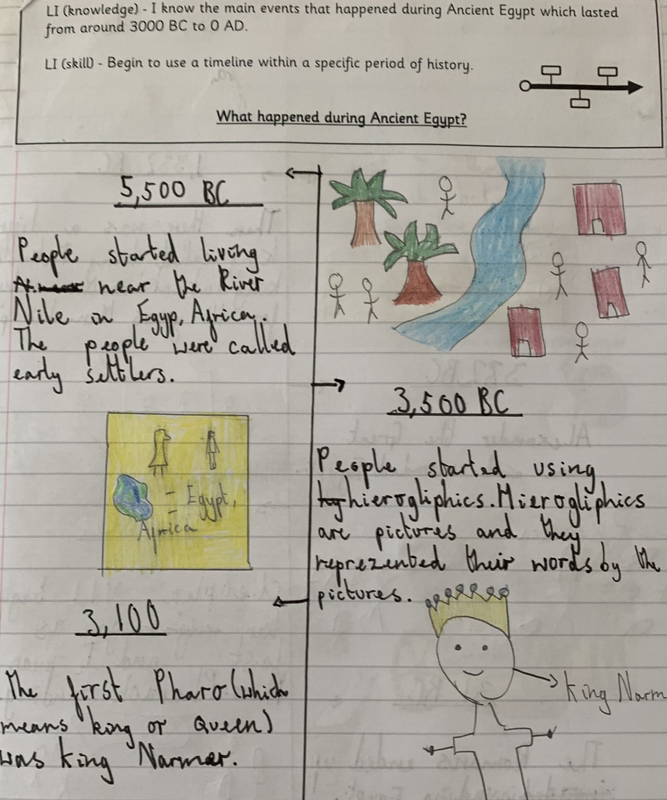 LI (knowledge) - I know the main events that happened during Ancient Egypt which lasted
from around 3000 BC to 0 AD.
LI (skill) - Begin to use a timeline within a specific period of history.
What happened during Ancient Egypt?
5,500 BC
People started living
near the River
Nile in Egyp, Africa.
The people were called
early settlers.
3,500 BC
People started using
hierogliphics. Hierogliphics
are pictures and they
reprezented their words by the
pictures.
- Egypt,
Africa
3,100
The first Pharo (which
means king or Queen)
was king Narmer.
King Narm